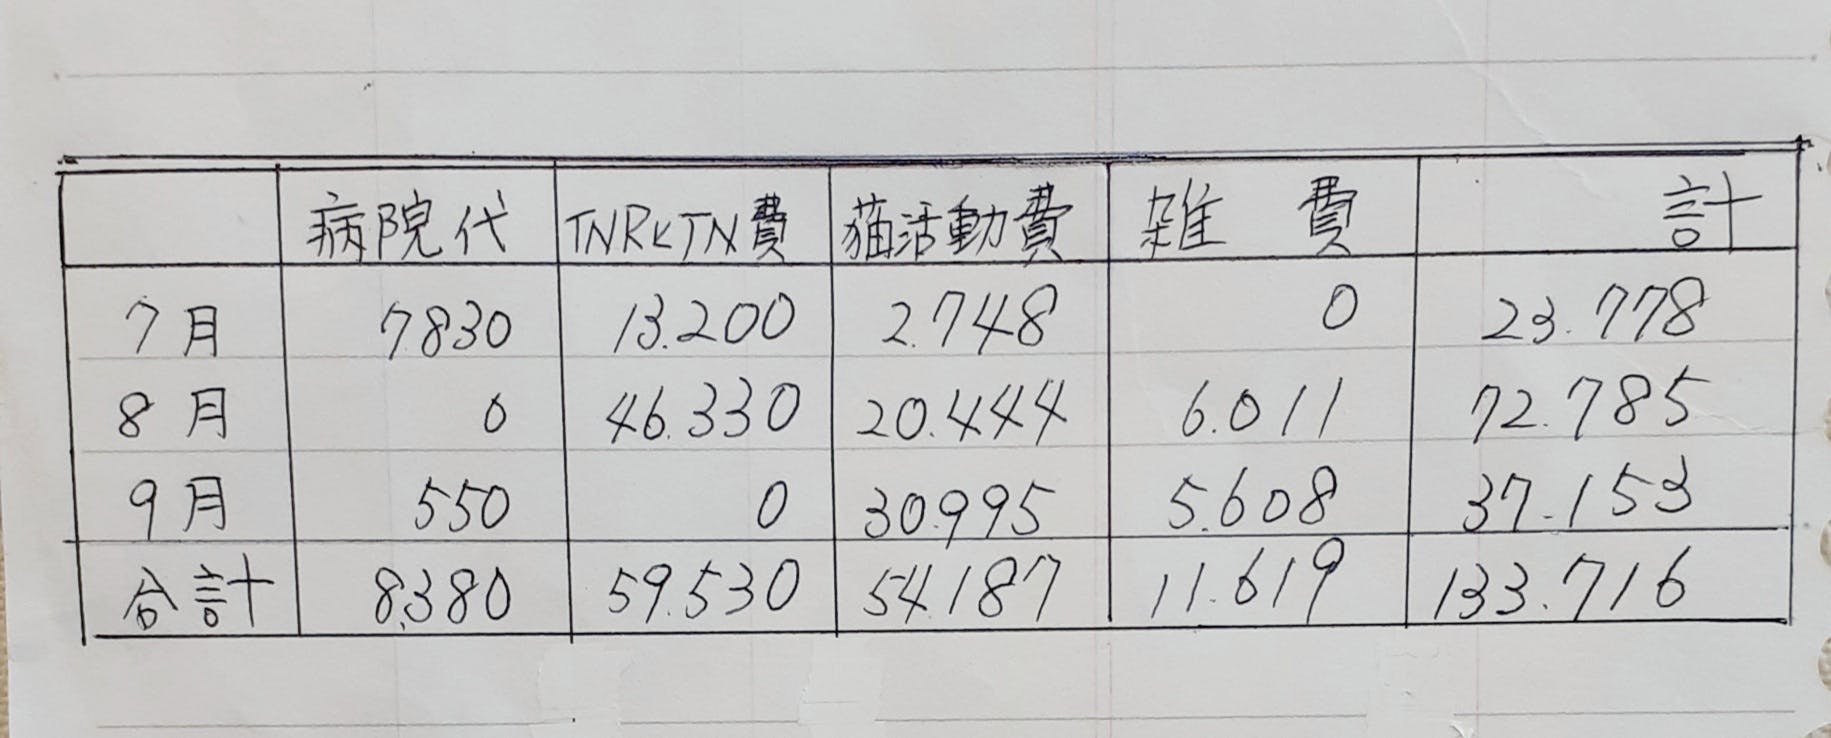 病院代 TNRとTN費 猫活動費 雑費 計
7月 7830 13.200 2.748 0 23.778
8月 0 46.330 20.444 6.011 72.785
9月 550 0 30.995 5.608 37.153
合計 8,380 59.530 54.187 11.619 133.716